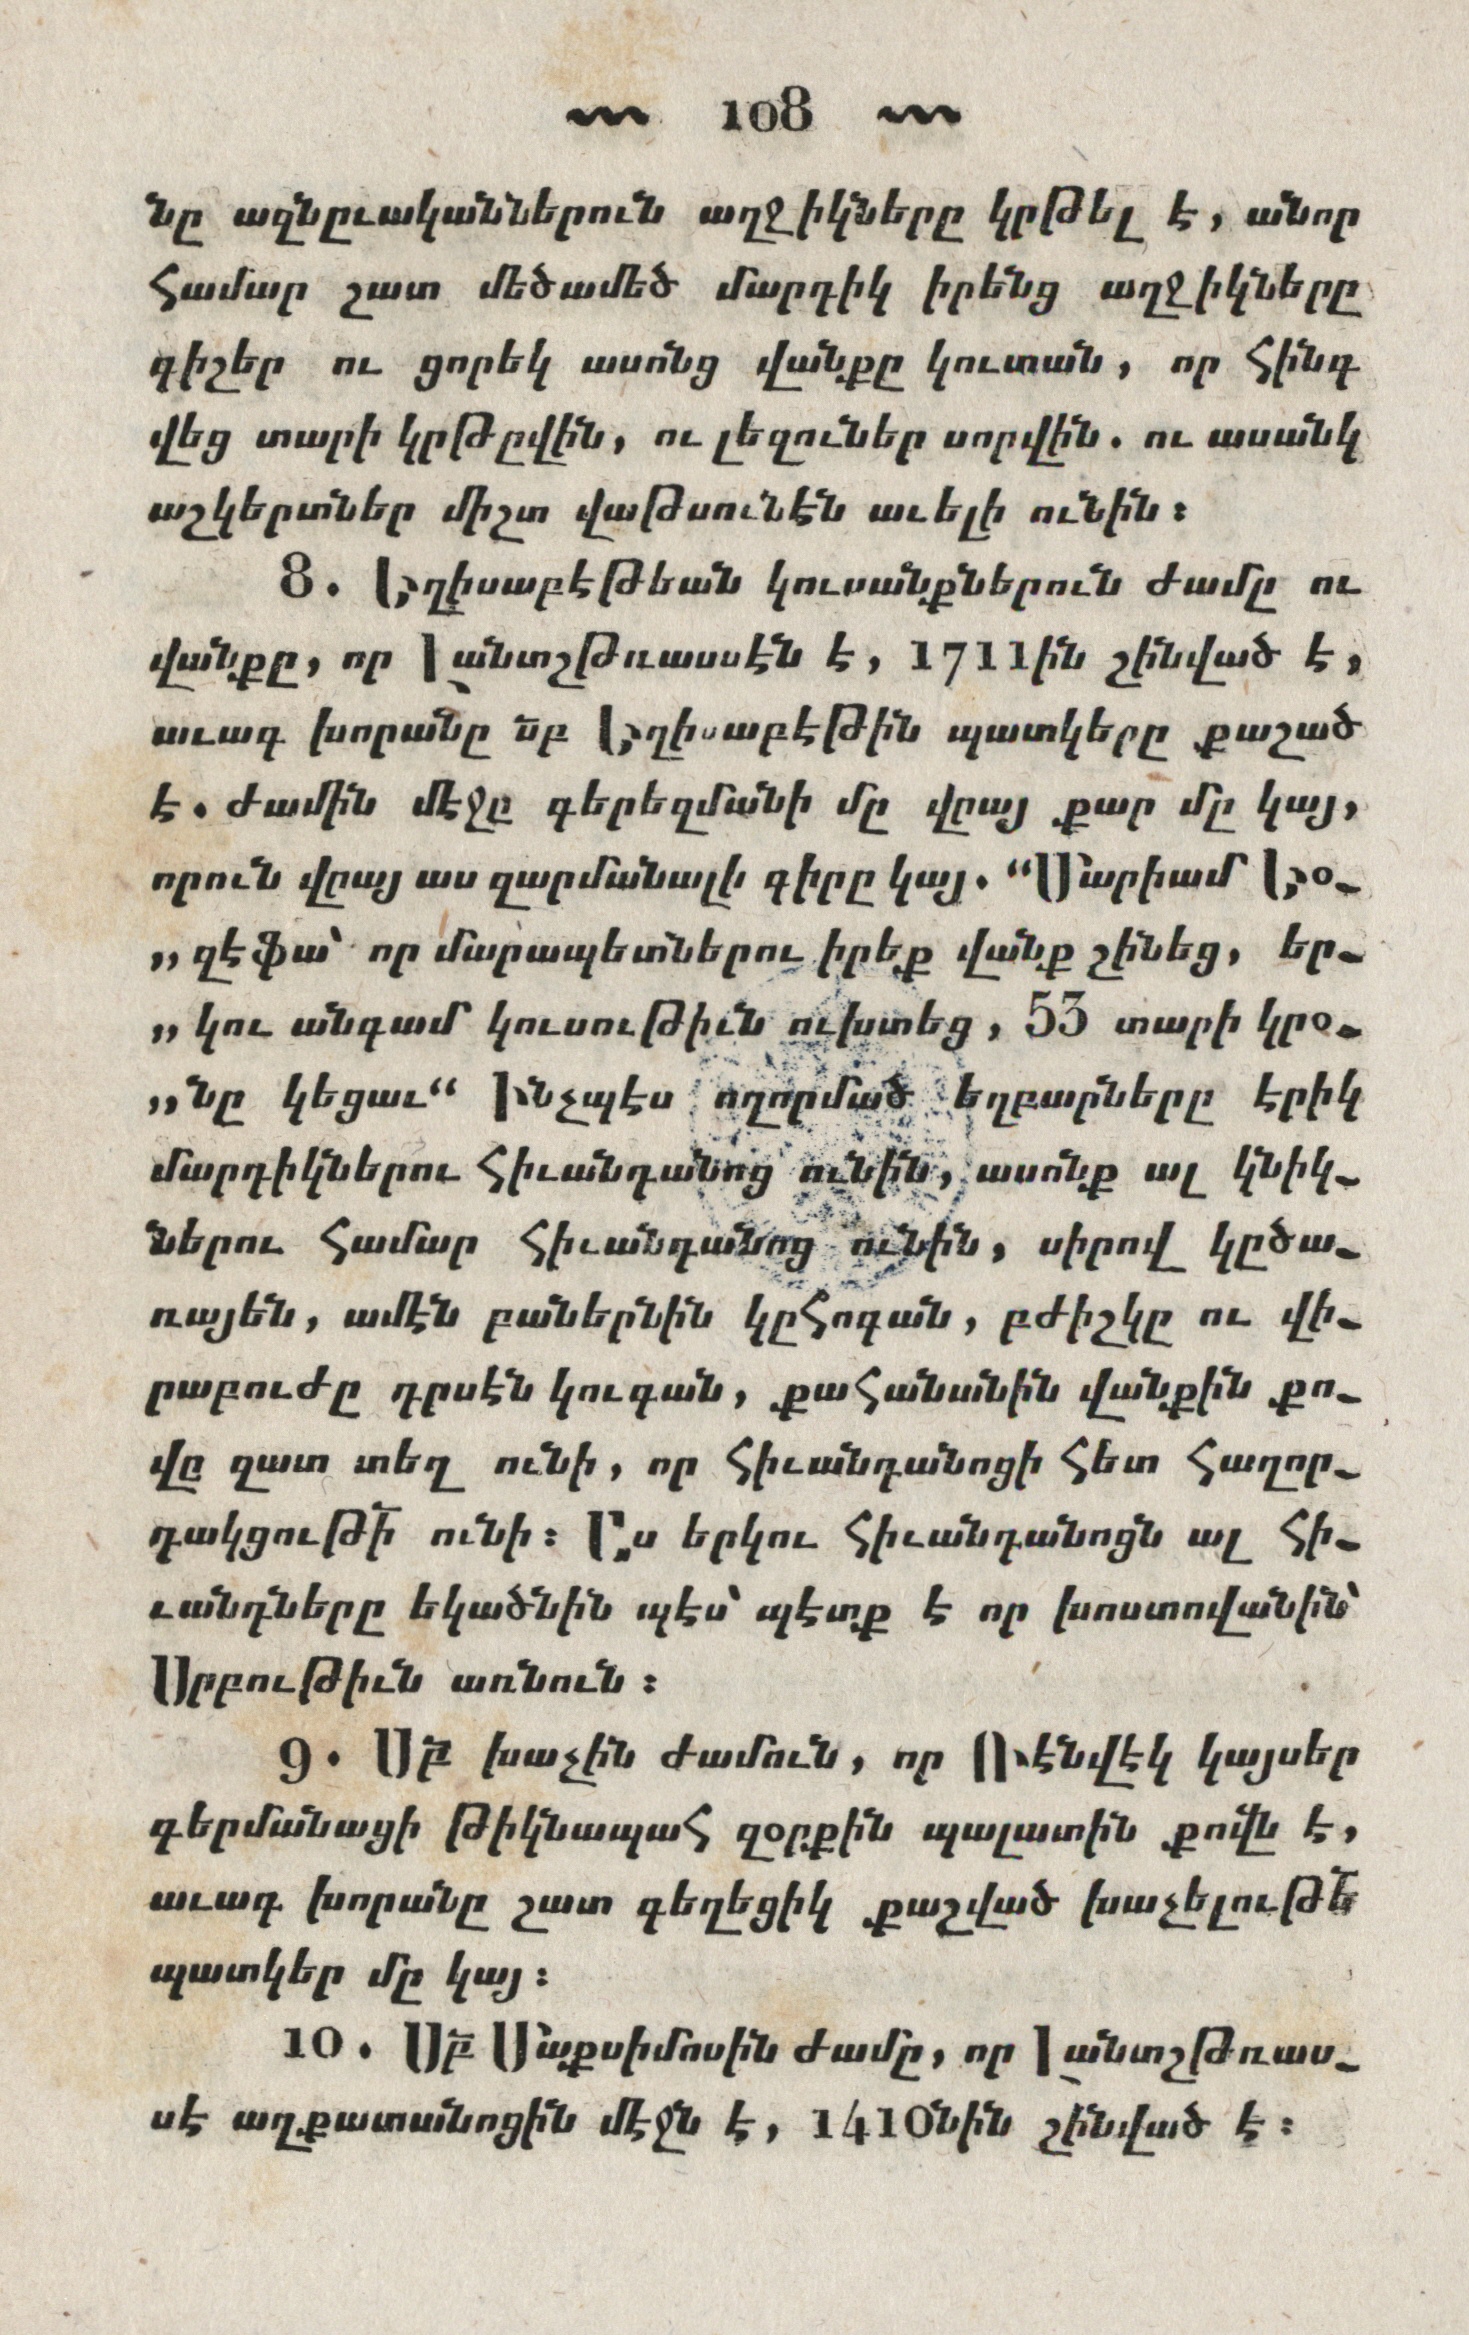 108
նը ազնըւականներուն աղջիկները կրթել է, անոր
համար շատ մեծամեծ մարդիկ իրենց աղջիկները
գիշեր ու ցորեկ ասոնց վանքը կուտան, որ հինգ
վեց տարի կրթըվին, ու լեզուներ սորվին. ու ասանկ
աշկերտներ միշտ վաթսունէն աւելի ունին։
8. Եղիսաբէթեան կուսանքներուն ժամը ու
վանքը, որ Լանտշթռասսէն է, 1711ին շինված է,
աւագ խորանը սբ Եղիսաբէթին պատկերը քաշած
է. ժամին մէջը գերեզմանի մը վըայ քար մը կայ,
որուն վըայ աս զարմանալի գիրը կայ. “Մարիամ Եօ-
„ զէֆա՝ որ մարապետներու իրեք վանք շինեց, եր-
„ կու անգամ կուսութիւն ուխտեց, 53 տարի կրօ-
„նը կեցաւ“ Ինչպէս ողորմած եղբարները էրիկ
մարդիկներու հիւանդանոց ունին, ասոնք ալ կնիկ-
ներու համար հիւանդանոց ունին, սիրով կըծա-
ռայեն, ամէն բաներնին կըհոգան, բժիշկը ու վի-
րաբուժը դրսէն կուգան, քահանանին վանքին քո-
վը զատ տեղ ունի, որ հիւանդանոցի հետ հաղոր-
դակցութի ունի։ Աս երկու հիւանդանոցն ալ հի-
ւանդները եկածնին պէս՝ պէտք է որ խոստովանին՝
Սրբութիւն առնուն։
9. Սբ խաչին ժամուն, որ Ռէնվէկ կայսեր
գերմանացի թիկնապահ զօրքին պալատին քովն է,
աւագ խորանը շատ գեղեցիկ քաշված խաչելութե
պատկեր մը կայ։
10. Սբ Մաքսիմոսին ժամը, որ Լանտշթռաս-
սէ աղքատանոցին մէջն է, 1410նին շինված է։